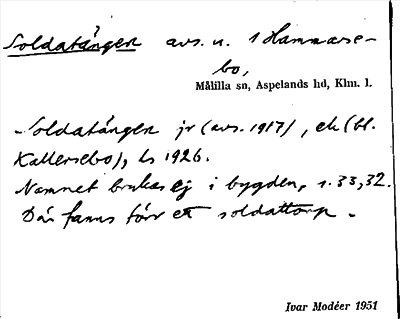 Soldatängen avs. u. 1 Hammarse-
bo,
Målilla sn, Aspelands hd, Klm. l.
Soldatängen jr (avs. 1917), ek (bl.
Kallersebo), ls 1926.
Namnet brukas ej i bygden, s. 33, 32.
Där fanns förr ett soldattorp.
Ivar Modéer 1951